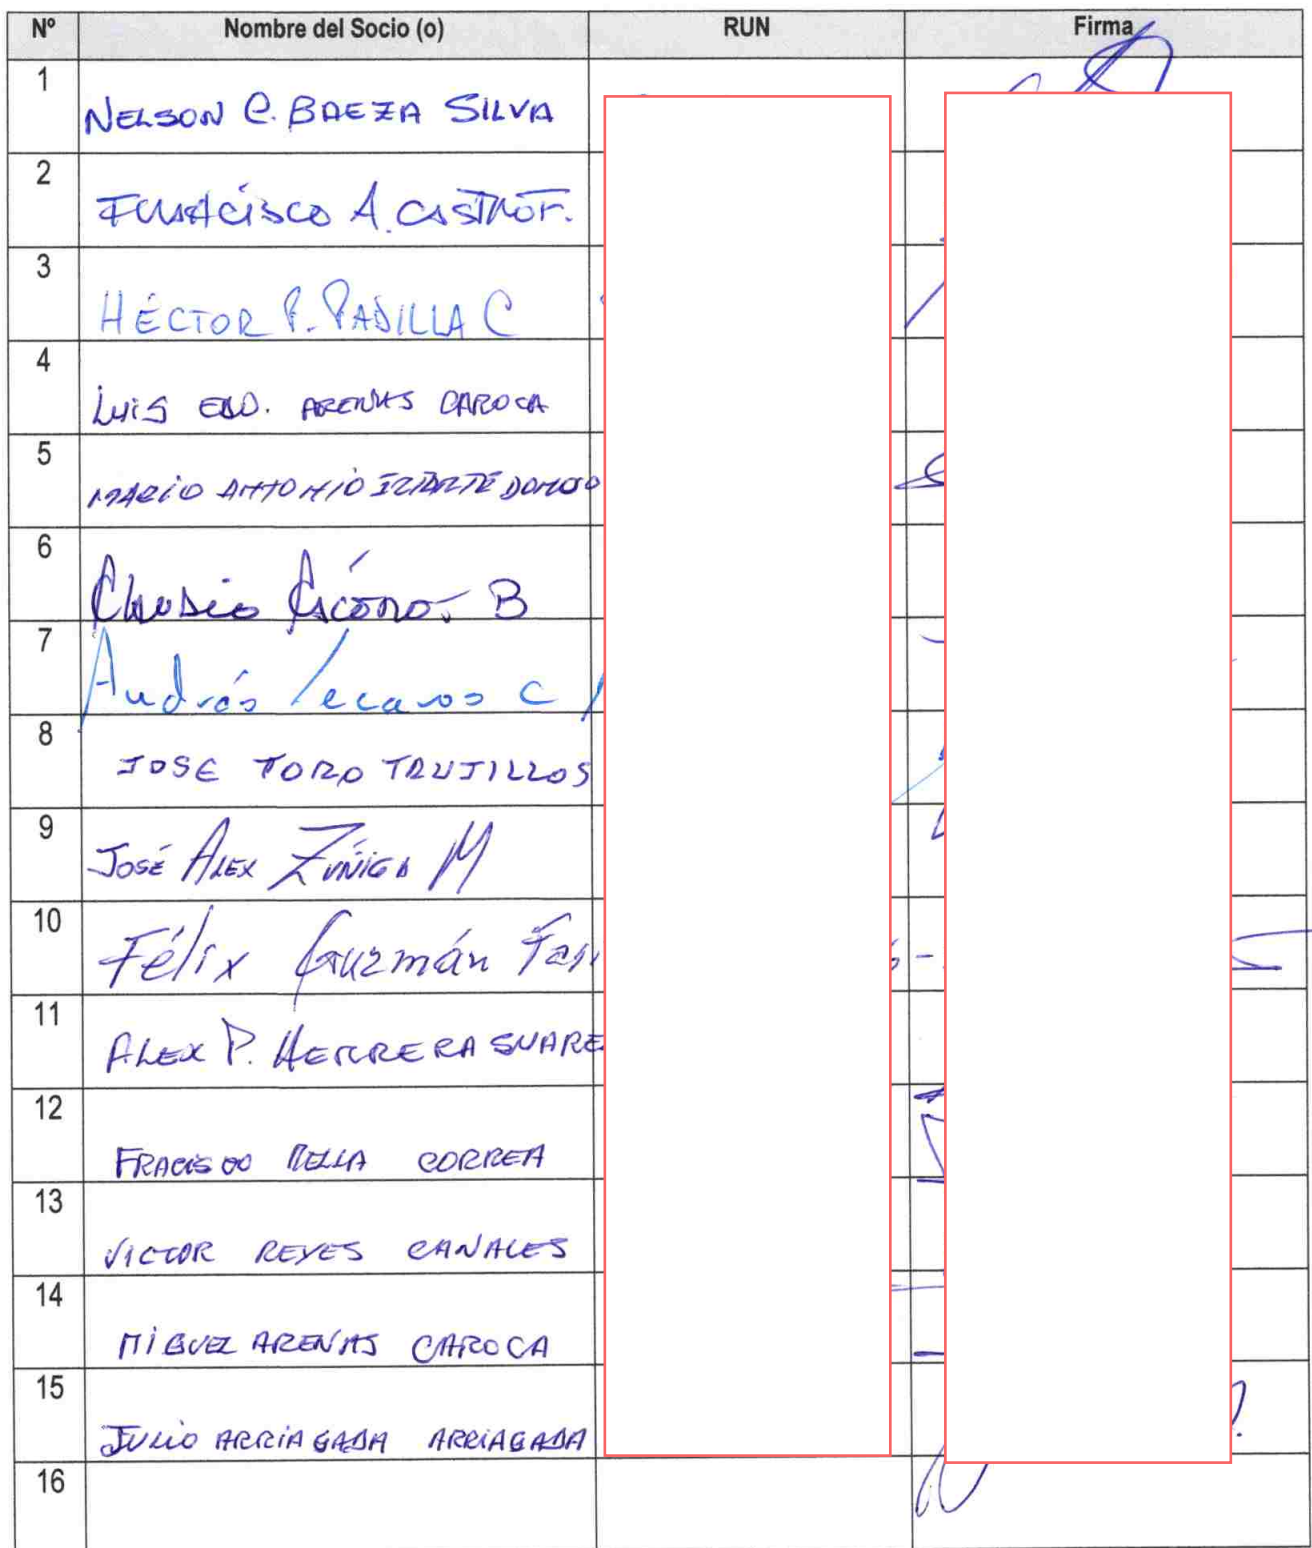 Nº Nombre del Socio (o) RUN Firma
1
NELSON C. BAEZA SILVA
2
FRANCISCO A. CASTRO F.
3
HÉCTOR P. PADILLA C
4
LUIS EDO. ARENAS CAROCA
5
MARIO ANTONIO IRIARTE DONOSO
6
Claudio B
7
Andrés Lecaros C
8
JOSE TORO TRUJILLOS
9
JOSÉ ALEX ZUÑIGA M
10
Félix Guzmán
11
ALEX P. HERRERA SUAREZ
12
FRACISCO CORREA
13
VICTOR REYES CANALES
14
MIGUEL ARENAS CAROCA
15
JULIO ARRIAGADA ARRIAGADA
16